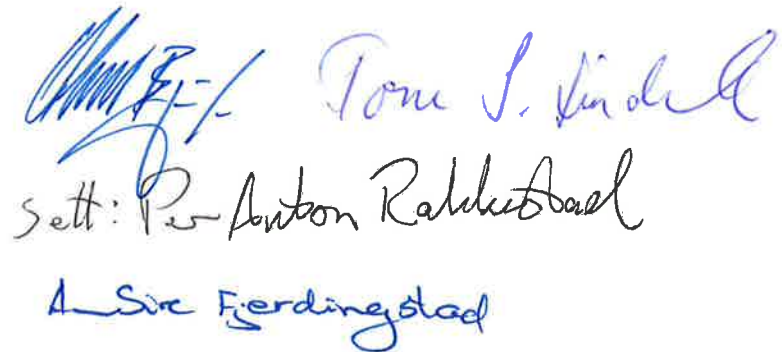 Tom S. Lindell
Sett: Per Anton Rakkestad
Siv Fjerdingstad